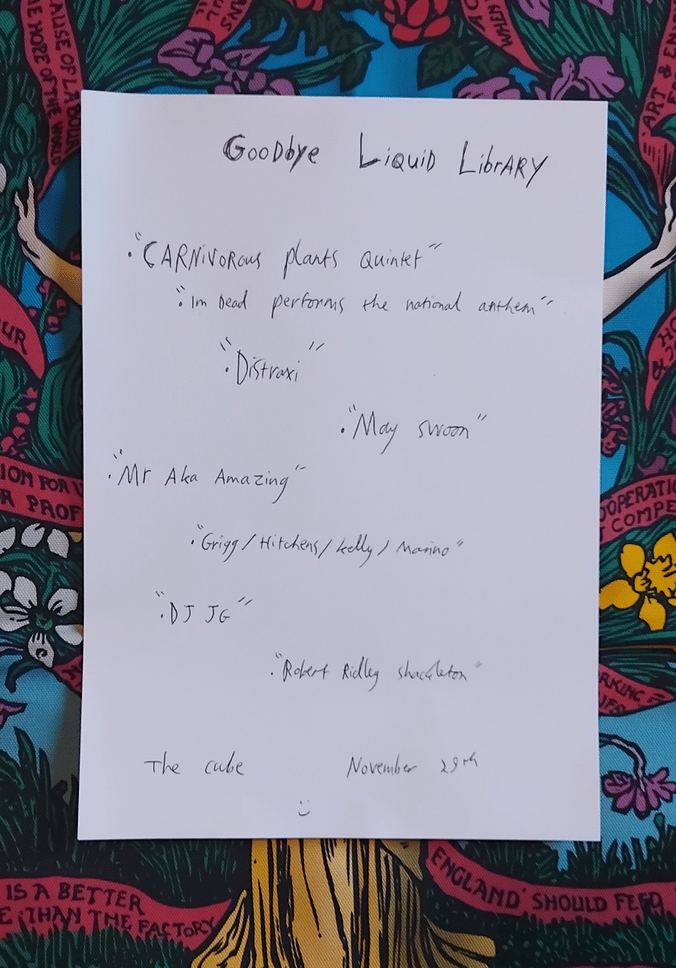 Goodbye Liquid Library
· "Carnivorous plants Quintet"
· "Im Dead performs the national anthem"
· "Distraxi"
· "May swoon"
· "Mr Aka Amazing"
· "Grigg / Hitchens / kelly / Marino"
· "DJ JG"
· "Robert Ridley shackleton"
The cube November 29th
:)
IS A BETTER
THAN THE FACTORY
ENGLAND SHOULD FEED
THE HOPE OF THE WORLD
ION FOR
PROF
OPERATI
COMPE
RKING
WHEN
ART &